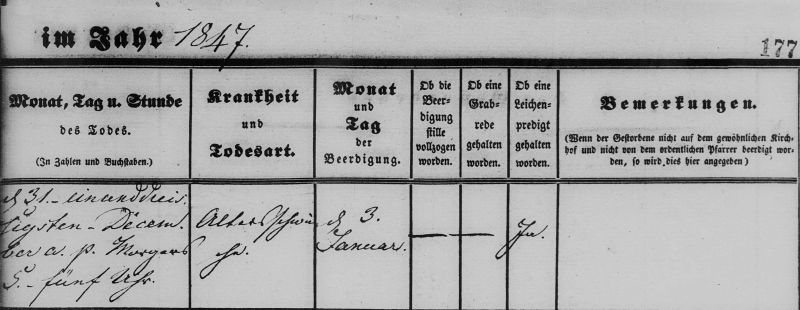 im Jahr 1847.
177
Monat, Tag u. Stunde
des Todes.
(In Zahlen und Buchstaben.)
Krankheit
und
Todesart.
Monat
und
Tag
der
Beerdigung.
Ob die
Beer-
digung
stille
vollzogen
worden.
Ob eine
Grab-
rede
gehalten
worden.
Ob eine
Leichen-
predigt
gehalten
worden.
Bemerkungen.
(Wenn der Gestorbene nicht auf dem gewöhnlichen Kirch-
hof und nicht von dem ordentlichen Pfarrer beerdigt wor-
den, so wird dies hier angegeben)
d 31.- einunddreis-
sigsten - Decem-
ber a. p. Morgens
5.- fünf Uhr.
Altersschwä-
che.
d 3.
Januar.
—
—
Ja.